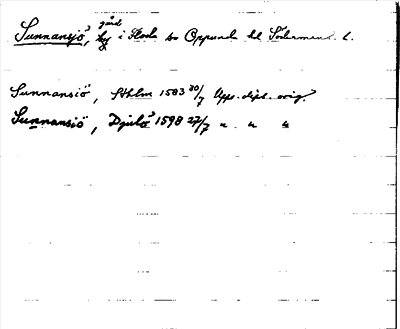 Sunnansjö, gård i Floda sn Oppunda hd Södermanl. l.
Sunnansiö, Sthlm 1583 30/7 Upps. dipl. orig.
Sunnansiö, Djulö 1598 27/7 " " "